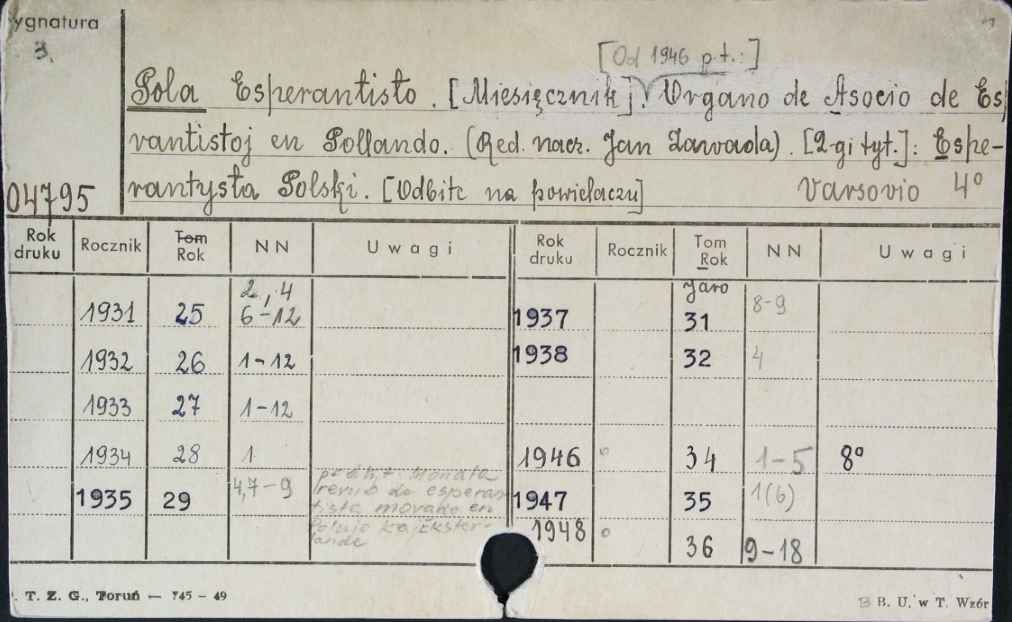 ygnatura
3.
[Od 1946 p.t.:]
Pola Esperantisto. [Miesięcznik]. Organo de Asocio de Es
rantistoj en Pollando. (Red. nacz. Jan Zawada). [2-gi tyt.]: Espe-
rantysta Polski. [Odbitk na powielaczu] Varsovio 4°
04795
Rok druku Rocznik Tom Rok NN Uwagi Rok druku Rocznik Tom Rok NN Uwagi
Jaro
1931 25 2,4 6-12 1937 31 8-9
1932 26 1-12 1938 32 4
1933 27 1-12
1934 28 1 1946 34 1-5 8°
1935 29 4,7-9 Monata esperan en Polujo kaj Ekster- lande 1947 35 1(6)
1948 36 9-18
. T. Z. G., Toruń — 745 - 49
B. U. w T. Wzór